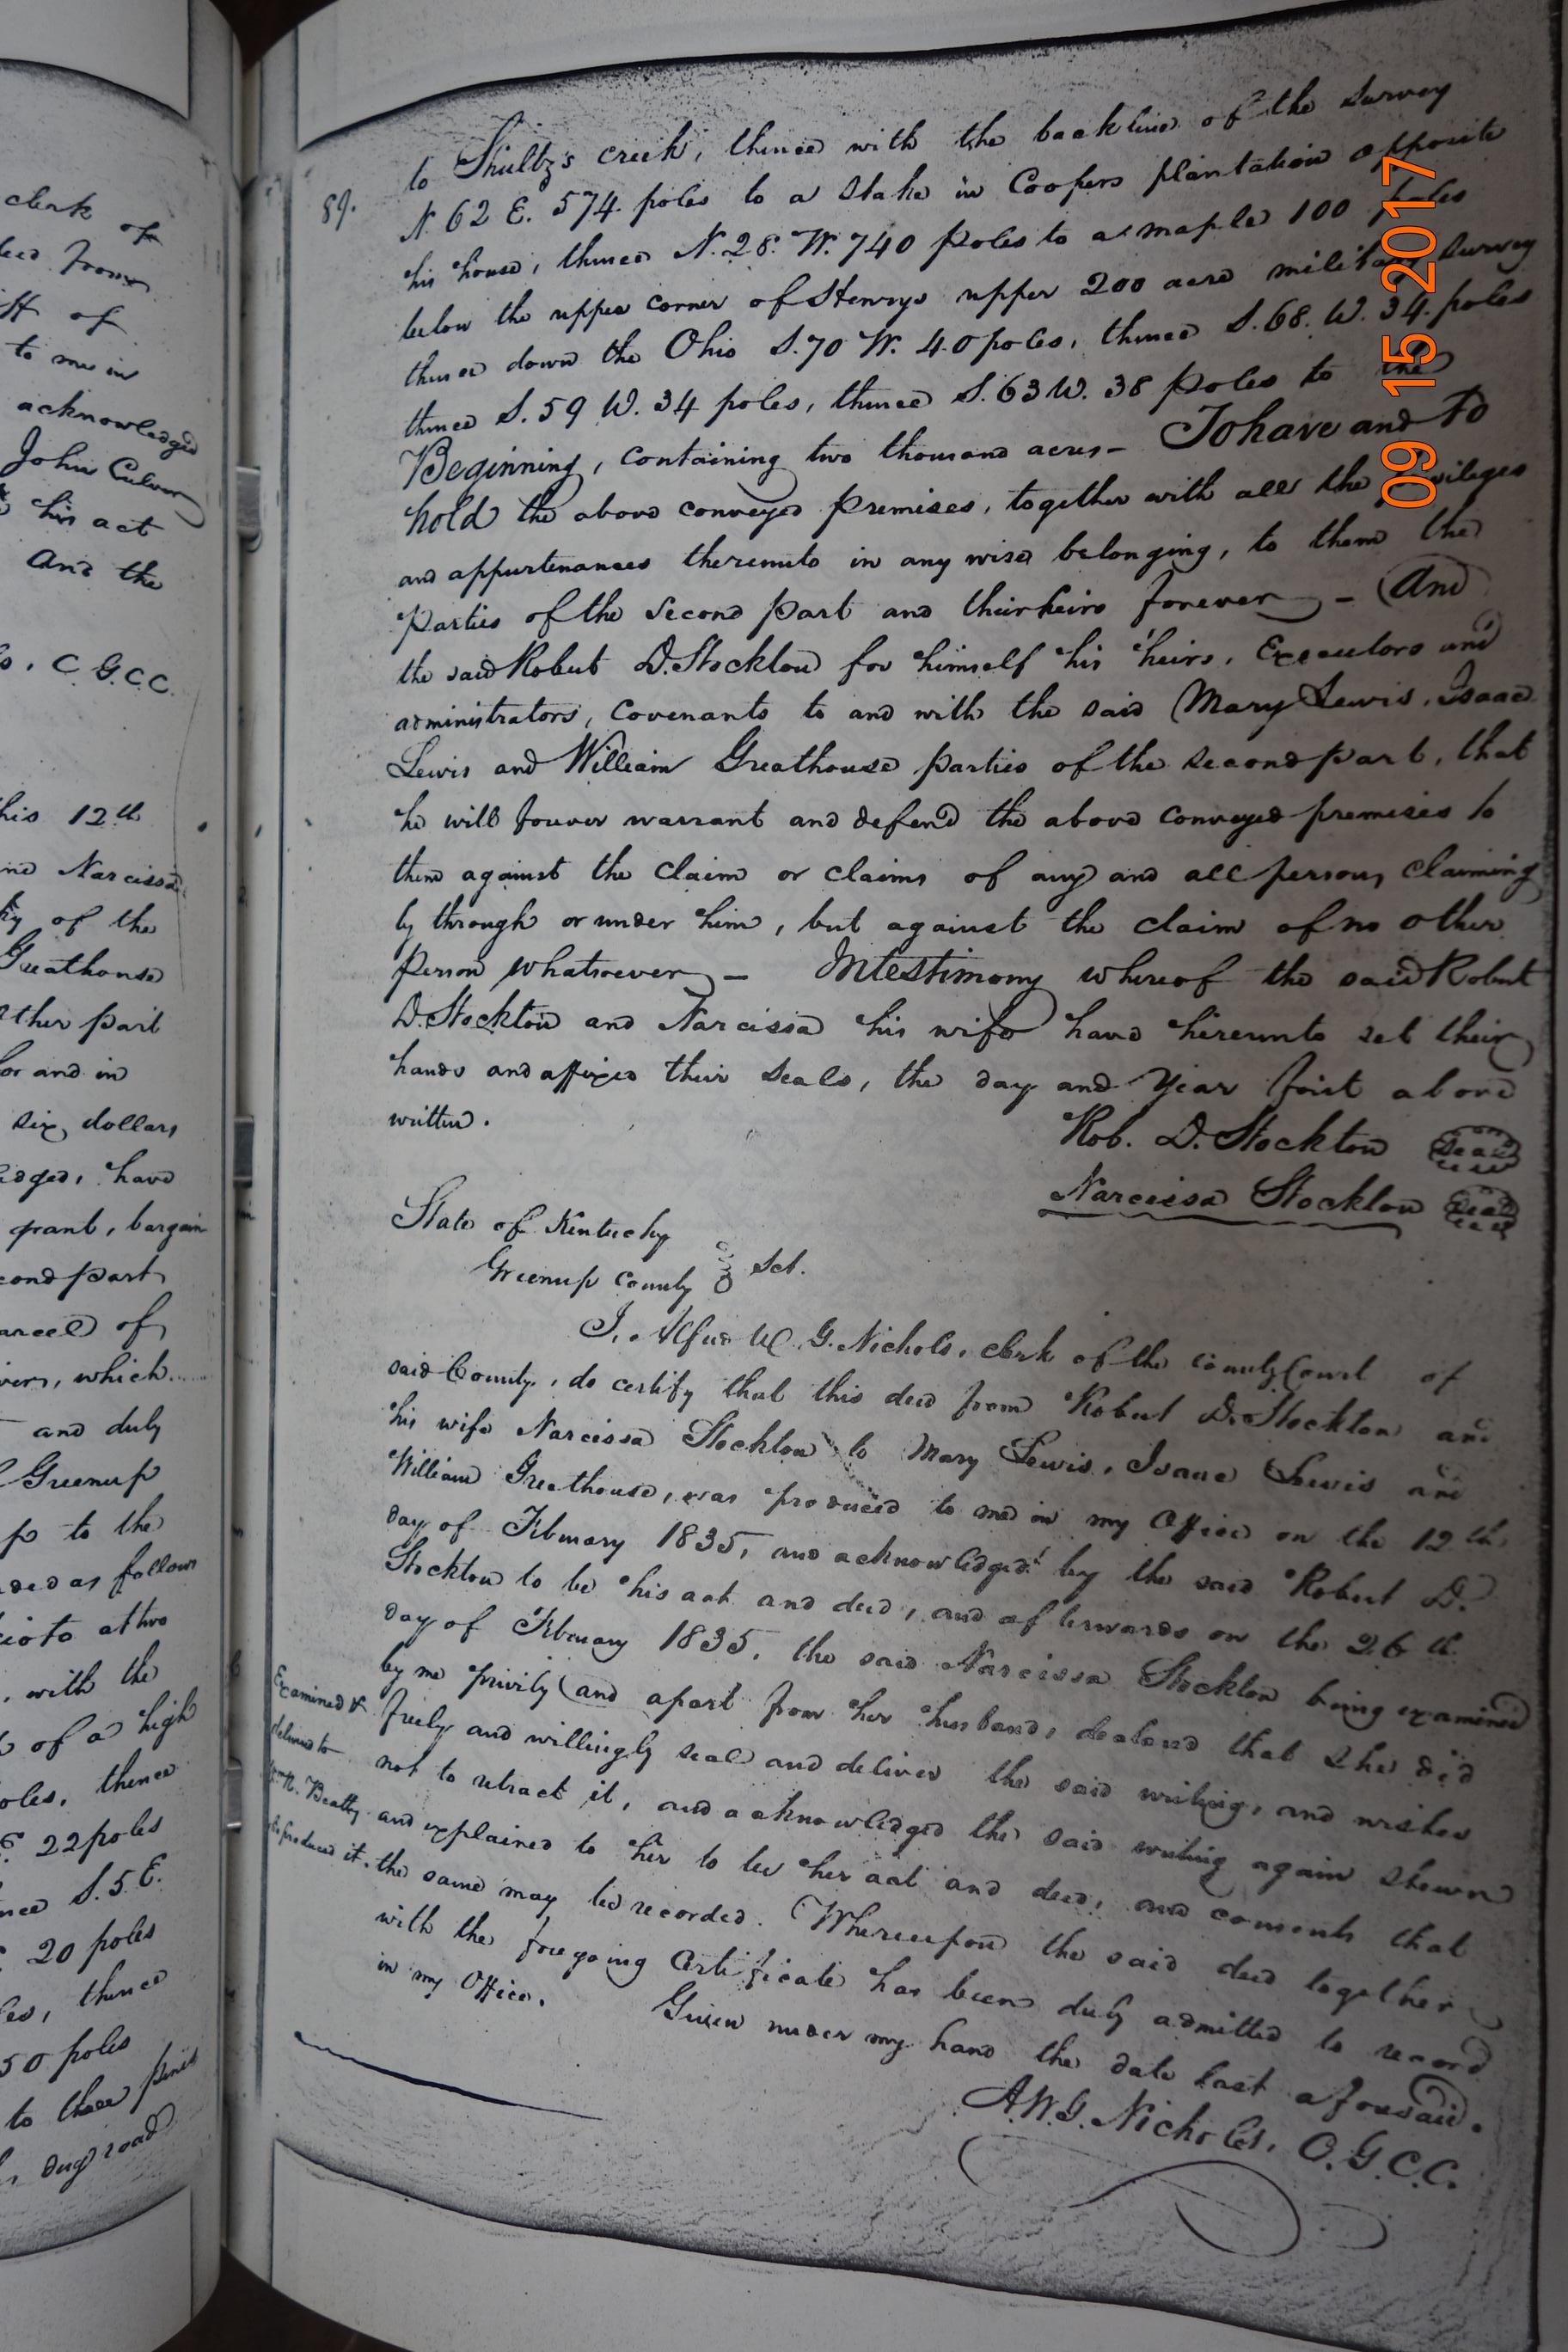 clerk of
deed from
of
to me in
acknowledged
John Culver
his act
and the
C.G.C.C.
this 12th
and Narcissa
of the
Greathouse
other part
for and in
six dollars
edged, have
grant, bargain
cond part,
arcel of
which
and duly
Greenup
p to the
ded as follows
cioto at two
, with the
of a high
oles, thence
E. 22 poles
nce S. 5 E.
20 poles
les, thence
50 poles
to three
dug road
89.
to Shultz's creek, thence with the back line of the survey
N. 62 E. 574 poles to a stake in Coopers plantation opposite
his house, thence N. 28. W. 740 poles to a maple 100 poles
below the upper corner of Henrys upper 200 acre military survey
thence down the Ohio S. 70 W. 40 poles, thence S. 68. W. 34. poles
thence S. 59 W. 34 poles, thence S. 63 W. 38 poles to the
Beginning, containing two thousand acres - To have and To
hold the above conveyed premises, together with all the privileges
and appurtenances thereunto in any wise belonging, to them the
Parties of the second part and their heirs forever - And
the said Robert D. Stockton for himself his heirs, Executors and
administrators, covenants to and with the said Mary Lewis, Isaac
Lewis and William Greathouse parties of the second part, that
he will forever warrant and defend the above conveyed premises to
them against the claim or claims of any and all persons claiming
by through or under him, but against the claim of no other
person whatsoever - In testimony whereof the said Robert
D. Stockton and Narcissa his wife have hereunto set their
hands and affixed their seals, the day and year first above
written.
Rob. D. Stockton Seal
Narcissa Stockton Seal
State of Kentucky
Greenup County Sct.
I, Alfred W. G. Nichols, clerk of the County Court of
said County, do certify that this deed from Robert D. Stockton and
his wife Narcissa Stockton to Mary Lewis, Isaac Lewis and
William Greathouse, was produced to me in my Office on the 12th
day of February 1835, and acknowledged by the said Robert D.
Stockton to be his act and deed, and afterwards on the 26th
day of February 1835, the said Narcissa Stockton being examined
by me privily and apart from her husband, declared that she did
freely and willingly seal and deliver the said writing, and wishes
not to retract it, and acknowledged the said writing again shewn
and explained to her to be her act and deed, and consents that
the same may be recorded. Whereupon the said deed together
with the foregoing Certificate has been duly admitted to record
in my Office. Given under my hand the date last aforesaid.
A.W.G. Nichols, C.G.C.C.
Examined &
delivered to
Wm. R. Beatty
to produce it.
09 15 2017